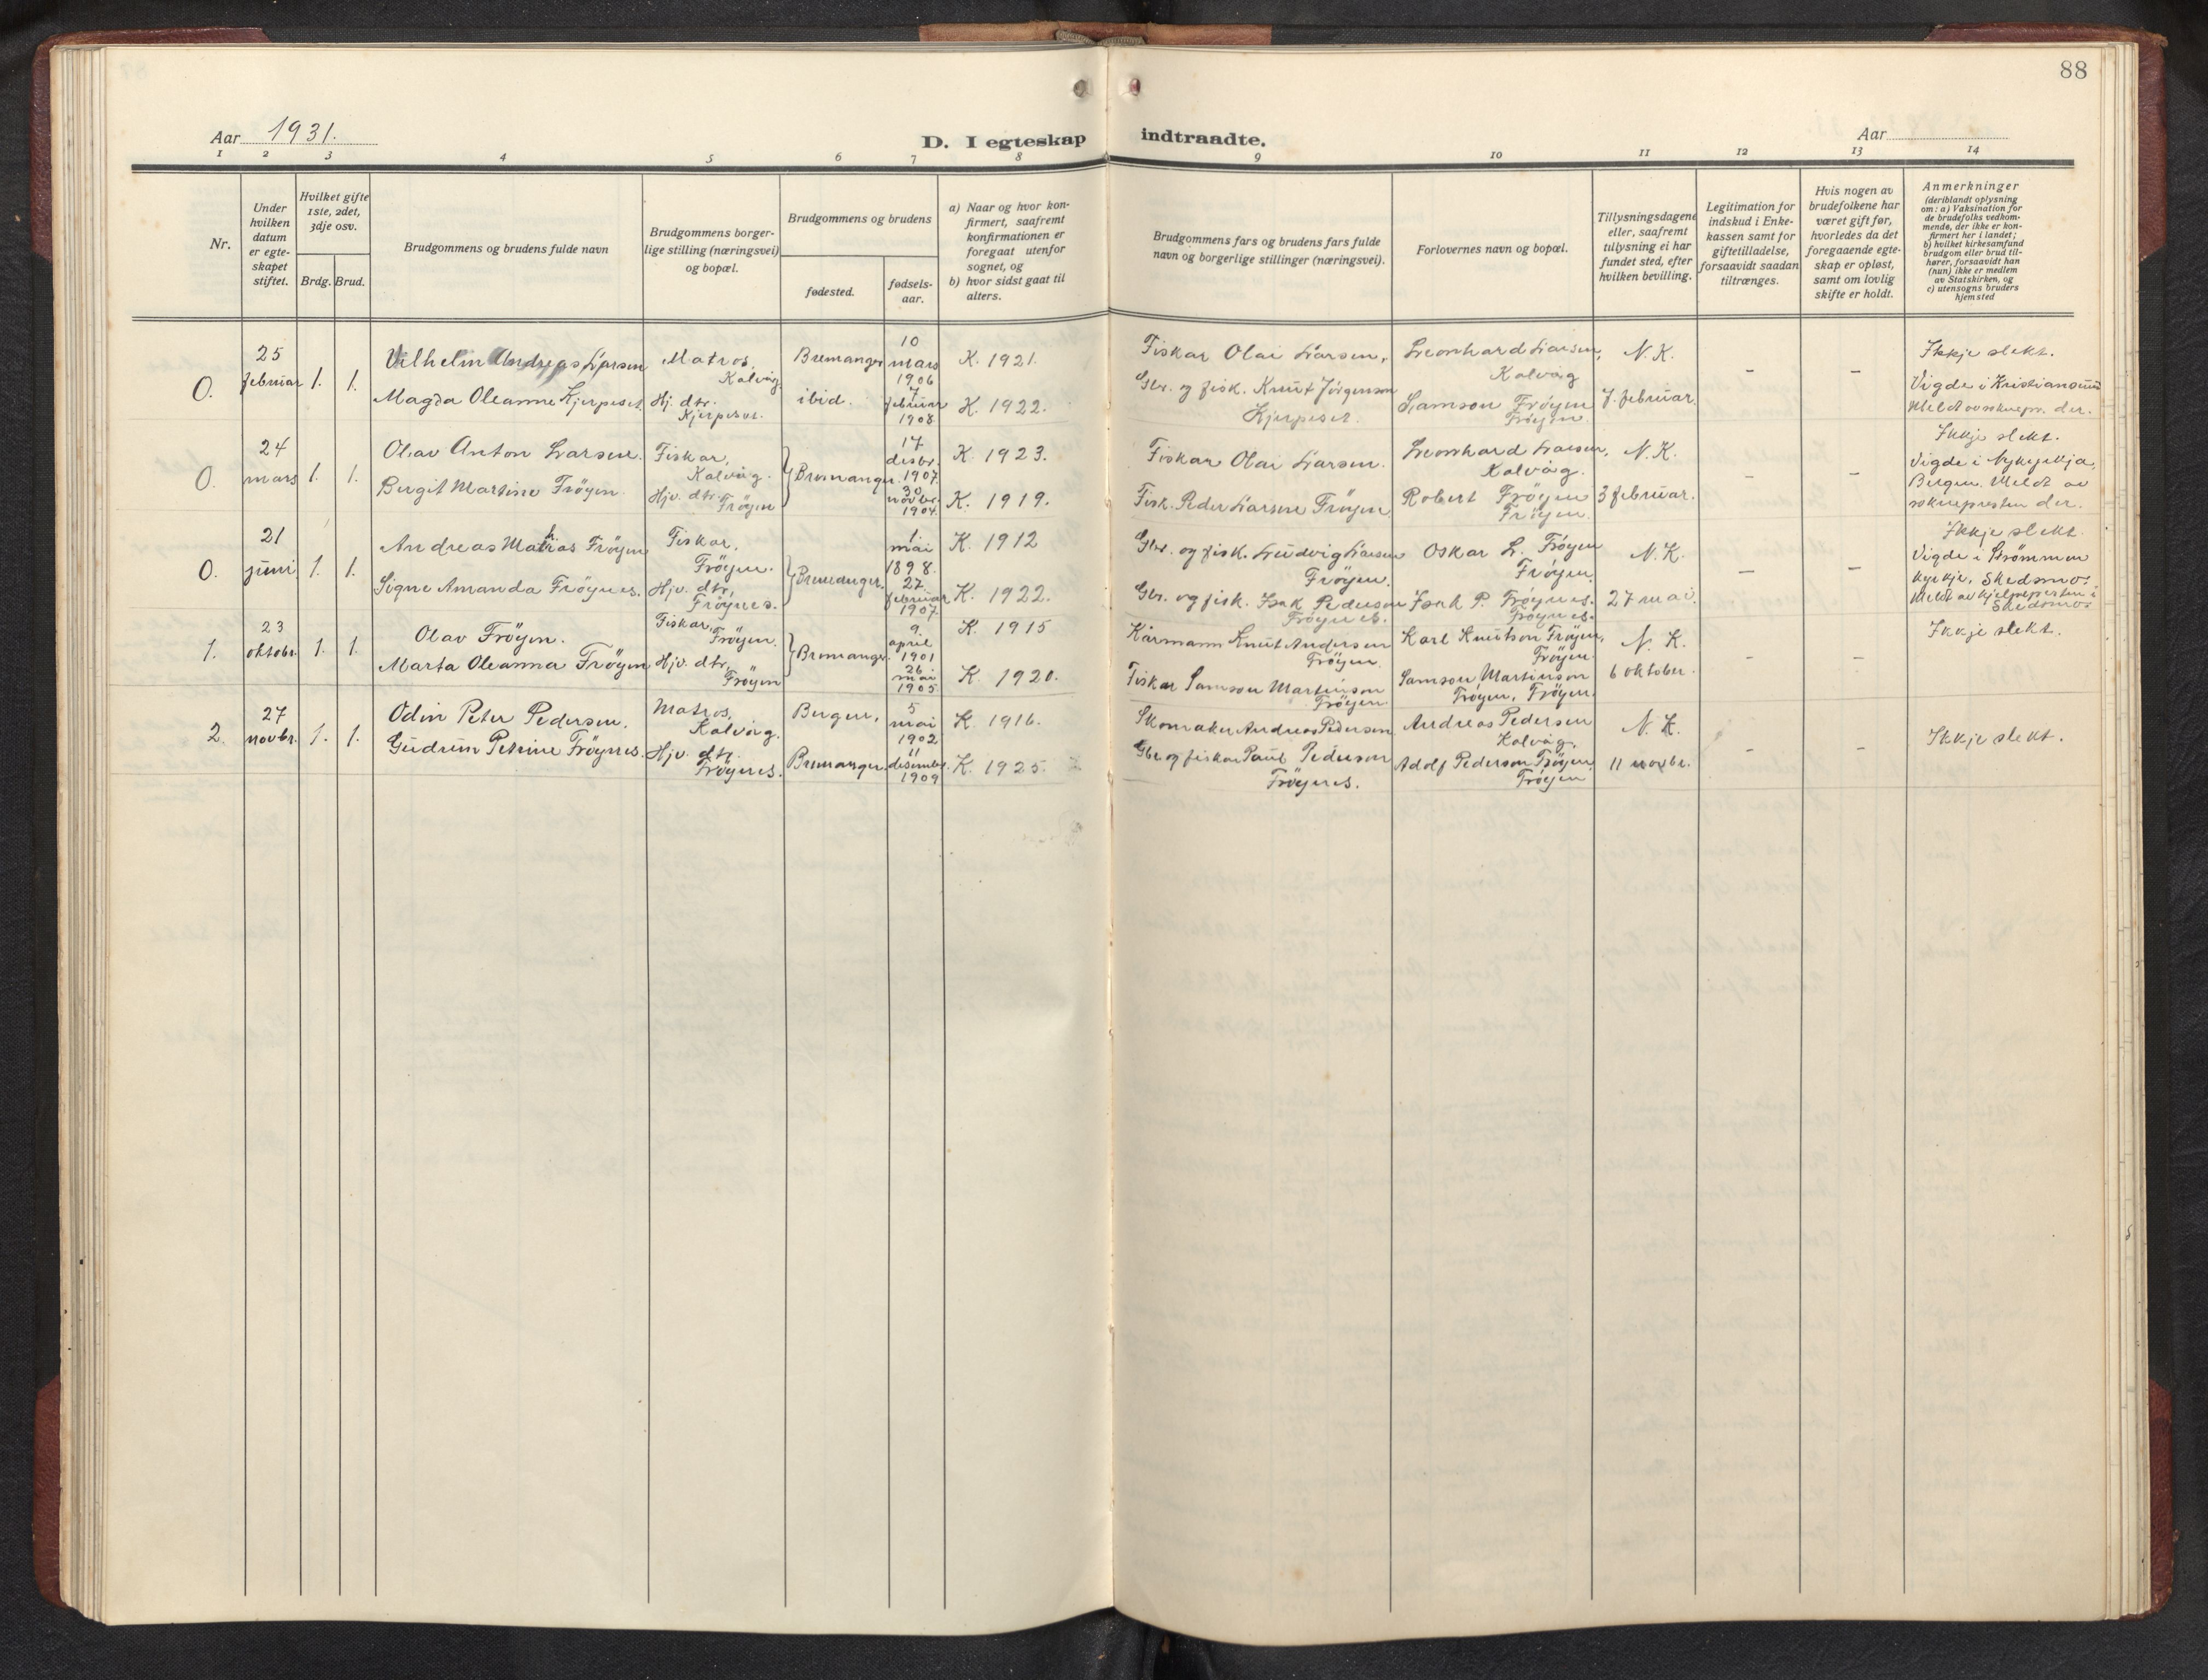 88
Aar 1931.
D. I egteskap indtraadte.
Aar
1 2 3 4 5 6 7 8 9 10 11 12 13 14
Nr.
Under
hvilken
datum
er egte-
skapet
stiftet.
Hvilket gifte
1ste, 2det,
3dje osv.
Brdg. Brud.
Brudgommens og brudens fulde navn
Brudgommens borger-
lige stilling (næringsvei)
og bopæl.
Brudgommens og brudens
fødested.
fødsels-
aar.
a) Naar og hvor kon-
firmert, saafremt
konfirmationen er
foregaat utenfor
sognet, og
b) hvor sidst gaat til
alters.
Brudgommens fars og brudens fars fulde
navn og borgerlige stillinger (næringsvei).
Forlovernes navn og bopæl.
Tillysningsdagene
eller, saafremt
tillysning ei har
fundet sted, efter
hvilken bevilling.
Legitimation for
indskud i Enke-
kassen samt for
giftetilladelse,
forsaavidt saadan
tiltrænges.
Hvis nogen av
brudefolkene har
været gift før,
hvorledes da det
foregaaende egte-
skap er opløst,
samt om lovlig
skifte er holdt.
Anmerkninger
(deriblandt oplysning
om: a) Vaksination for
de brudefolks vedkom-
mende, der ikke er kon-
firmert her i landet;
b) hvilket kirkesamfund
brudgom eller brud til-
hører, forsaavidt han
(hun) ikke er medlem
av Statskirken, og
c) utensogns bruders
hjemsted
0.
25
februar
1. 1.
Vilhelm Andreas Larsen
Magda Oleanne Kjerpeset.
Matros,
Kalvåg.
Hj. dtr.
Kjerpeset.
Bremanger
ibid.
10
mars
1906
7
februar
1908
K. 1921.
K. 1922.
Fiskar Olai Larsen,
Gbr. og fisk. Knut Jörgenson
Kjerpeset.
Leonhard Larsen,
Kalvåg
Samson Fröyen
Fröyen.
N. K.
7. februar.
–
–
Ikkje slekt.
Vigde i Kristiansund
Meldt av soknepr. der.
0.
24
mars
1. 1.
Olav Anton Larsen.
Bergit Martine Fröyen.
Fiskar,
Kalvåg.
Hjv. dtr.
Fröyen
Bremanger
17
desbr.
1907.
30
novbr.
1904.
K. 1923.
K. 1919.
Fiskar Olai Larsen.
Fisk. Peder Larsen Fröyen.
Leonhard Larsen,
Kalvåg.
Robert Fröyen
Fröyen.
N. K.
3 februar.
–
–
Ikkje slekt.
Vigde i Nykyrkja,
Bergen. Meldt av
soknepresten der.
0.
21
juni
1. 1.
Andreas Mathias Fröyen
Signe Amanda Fröynes.
Fiskar,
Fröyen.
Hjv. dtr,
Fröynes.
Bremanger.
1
mai
1898.
27
februar
1907.
K. 1912
K. 1922.
Gbr. og fisk. Ludvig Larsen
Fröyen.
Gbr. og fisk. Isak Pederson
Fröynes.
Oskar L. Fröyen
Fröyen.
Isak P. Fröynes.
Fröynes.
N. K.
27 mai.
–
–
Ikkje slekt.
Vigde i Strömmen
kyrkje, Skedsmo.
Meldt av hjelpepresten i
Skedsmo
1.
23
oktobr.
1. 1.
Olav Fröyen.
Marta Oleanna Fröyen
Fiskar,
Fröyen.
Hjv. dtr,
Fröyen
Bremanger.
9
april
1901
26
mai
1905.
K. 1915
K. 1920.
Kårmann Knut Andersen
Fröyen.
Fiskar Samson Martinson
Fröyen.
Karl Knutson Fröyen,
Fröyen.
Samson Martinson
Fröyen, Fröyen.
N. K.
6 oktober.
–
–
Ikkje slekt.
2.
27
novbr.
1. 1.
Odin Peter Pedersen.
Gudrun Petrine Fröynes.
Matros,
Kalvåg.
Hjv. dtr.
Fröynes.
Bergen.
Bremanger.
5
mai
1902
11
desembr.
1909
K. 1916.
K. 1925.
Skomaker Andreas Pedersen
Gbr. og fiskar Paul Pederson
Fröynes.
Andreas Pedersen
Kalvåg.
Adolf Pederson Fröyen
Fröyen
N. K.
11 novbr.
–
–
Ikkje slekt.